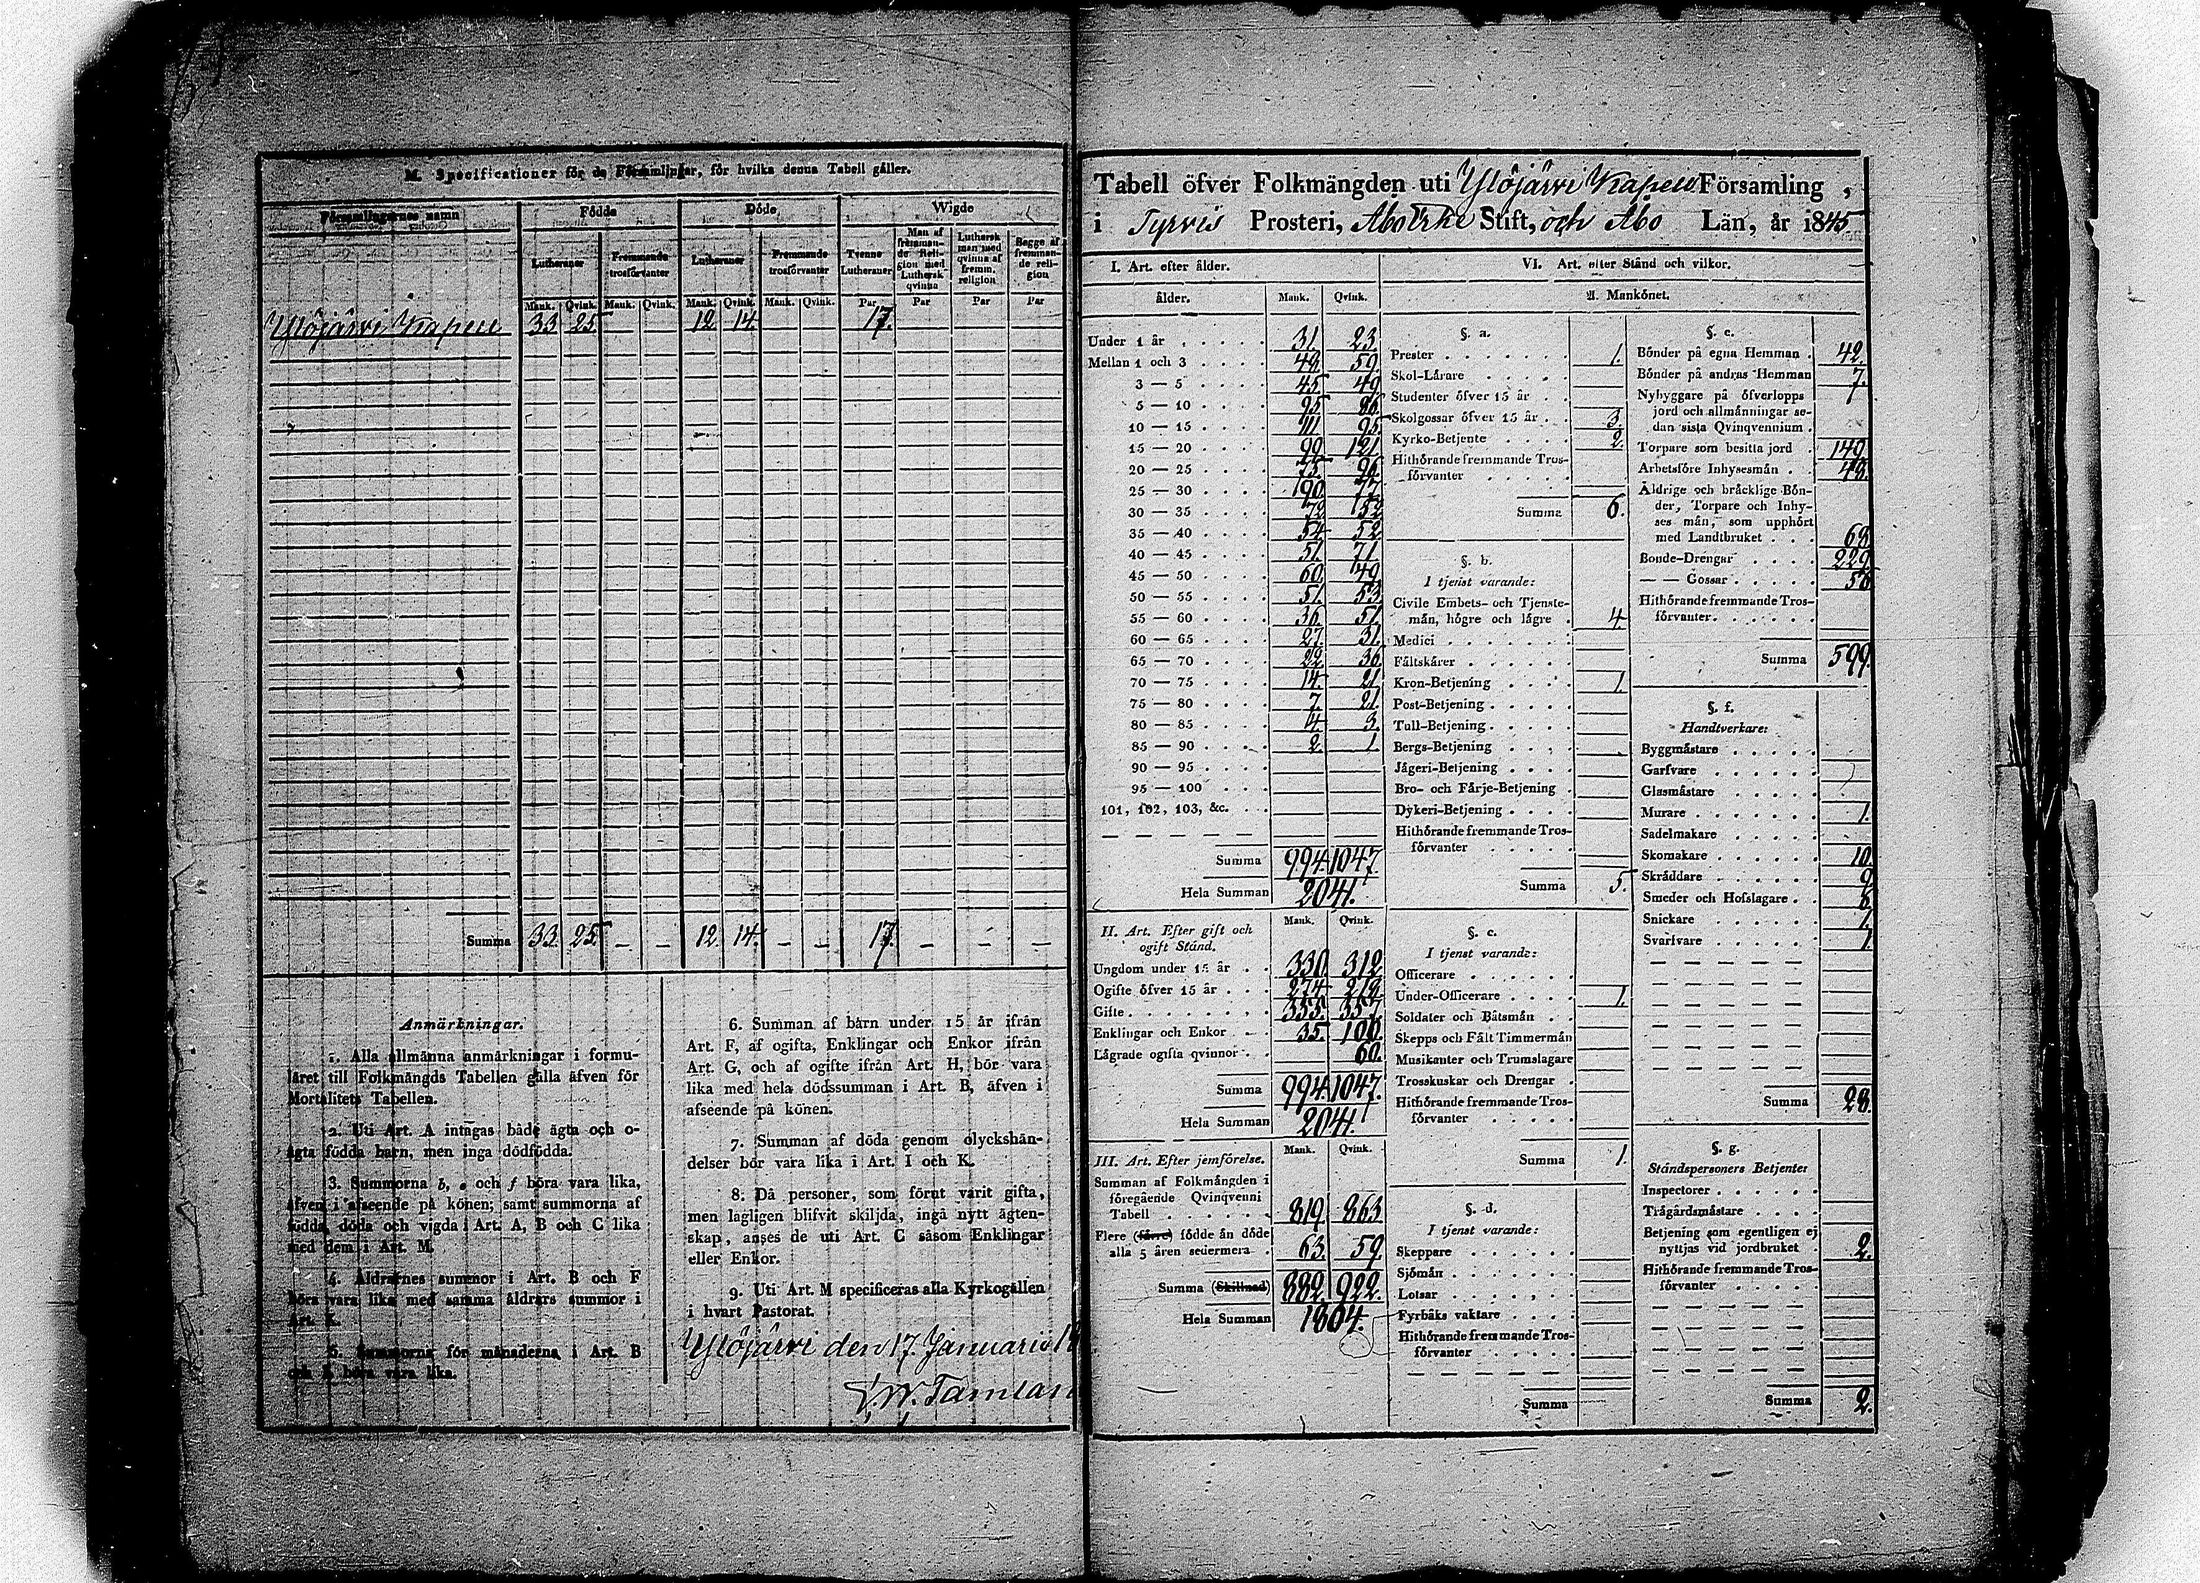 M. Specificationer för de Församlingar, för hvilka denna Tabell gäller.
Församlingarnes namn
Födde
Döde
Wigde
Lutheraner
Fremmande trosförvanter
Lutheraner
Fremmande trosförvanter
Trenne Lutheraner
Man af fremmande Religion med Luthersk qvinna
Luthersk man med qvinna af fremm. religion
Begge af fremmande religion
Mank. Qvink. Mank. Qvink. Mank. Qvink. Mank. Qvink. Par Par Par Par
Ylöjärvi Kapell 33 25 12 14. 17.
Summa 33 25 — — 12 14. — — 17. — — —
Anmärkningar.
1. Alla allmänna anmärkningar i formu-
läret till Folkmängds Tabellen gälla äfven för
Mortalitets Tabellen.
2. Uti Art. A intagas både ägta och o-
ägta födda barn, men inga dödfödda.
3. Summorna b, e och f böra vara lika,
äfven i afseende på könen; samt summorna af
födda, döda och vigda i Art. A, B och C lika
med dem i Art. M.
4. Åldrarnes summor i Art. B och F
böra vara lika med samma åldrars summor i
Art. K.
5. Summorna för månaderna i Art. B
och K böra vara lika.
6. Summan af barn under 15 år ifrån
Art. F, af ogifta, Enklingar och Enkor ifrån
Art. G, och af ogifte ifrån Art. H, bör vara
lika med hela dödssumman i Art. B, äfven i
afseende på könen.
7. Summan af döda genom olyckshän-
delser bör vara lika i Art. I och K.
8. Då personer, som förut varit gifta,
men lagligen blifvit skiljda, ingå nytt ägten-
skap, anses de uti Art. C såsom Enklingar
eller Enkor.
9. Uti Art. M specificeras alla Kyrkogällen
i hvart Pastorat.
Ylöjärvi den 17. Januarii 18
Tabell öfver Folkmängden uti Ylöjärvi Kapell Församling,
i Tyrvis Prosteri, Åbo Erke Stift, och Åbo Län, år 1845
I. Art. efter ålder.
ålder. Mank. Qvink.
Under 1 år 31. 23.
Mellan 1 och 3 48. 59.
3 — 5 45. 49.
5 — 10 95. 86.
10 — 15 111. 95.
15 — 20 99. 121.
20 — 25 75. 96.
25 — 30 190. 77.
30 — 35 72. 52.
35 — 40 54. 52.
40 — 45 51. 71.
45 — 50 60. 49.
50 — 55 51. 53.
55 — 60 36. 51.
60 — 65 27. 31.
65 — 70 22. 36.
70 — 75 14. 21.
75 — 80 7. 21.
80 — 85 4. 3.
85 — 90 2. 1.
90 — 95
95 — 100
101, 102, 103, &c.
Summa 994. 1047.
Hela Summan 2041.
Mank. Qvink.
II. Art. Efter gift och
ogift Stånd.
Ungdom under 15 år 330. 312.
Ogifte öfver 15 år 274. 212.
Gifte 355. 357.
Enklingar och Enkor 35. 106.
Lägrade ogifta qvinnor 60.
Summa 994. 1047.
Hela Summan 2041.
Mank. Qvink.
III. Art. Efter jemförelse.
Summan af Folkmängden i
föregående Qvinqvenni
Tabell 819. 863.
Flere (färre) födde än döde
alla 5 åren sedermera 63. 59.
Summa (Skillnad) 882. 922.
Hela Summan 1804.
VI. Art. efter Stånd och vilkor.
A. Mankönet.
§. a.
Prester 1.
Skol-Lärare
Studenter öfver 15 år
Skolgossar öfver 15 år 3.
Kyrko-Betjente 2.
Hithörande fremmande Tros-
förvanter
Summa 6.
§. b.
I tjenst varande:
Civile Embets- och Tjenste-
män, högre och lägre 4.
Medici
Fältskärer
Kron-Betjening 1.
Post-Betjening
Tull-Betjening
Bergs-Betjening
Jägeri-Betjening
Bro- och Färje-Betjening
Dykeri-Betjening
Hithörande fremmande Tros-
förvanter
Summa 5.
§. c.
I tjenst varande:
Officerare
Under-Officerare 1.
Soldater och Båtsmän
Skepps och Fält Timmermän
Musikanter och Trumslagare
Trosskuskar och Drengar
Hithörande fremmande Tros-
förvanter
Summa 1.
§. d.
I tjenst varande:
Skeppare
Sjömän
Lotsar
Fyrbåks vaktare
Hithörande fremmande Tros-
förvanter
Summa
§. e.
Bönder på egna Hemman 42.
Bönder på andras Hemman 7.
Nybyggare på öfverlopps
jord och allmänningar se-
dan sista Qvinqvennium
Torpare som besitta jord 149.
Arbetsföre Inhysesmän 48.
Äldrige och bräcklige Bön-
der, Torpare och Inhy-
ses män, som upphört
med Landtbruket 68.
Bonde-Drengar 229.
— — Gossar 56
Hithörande fremmande Tros-
förvanter
Summa 599.
§. f.
Handtverkare:
Byggmästare
Garfvare
Glasmästare
Murare 1.
Sadelmakare
Skomakare 10.
Skräddare 9.
Smeder och Hofslagare 6.
Snickare 1.
Svarfvare 1.
Summa 28.
§. g.
Ståndspersoners Betjenter
Inspectorer
Trägårdsmästare
Betjening som egentligen ej
nyttjas vid jordbruket 2.
Hithörande fremmande Tros-
förvanter
Summa 2.